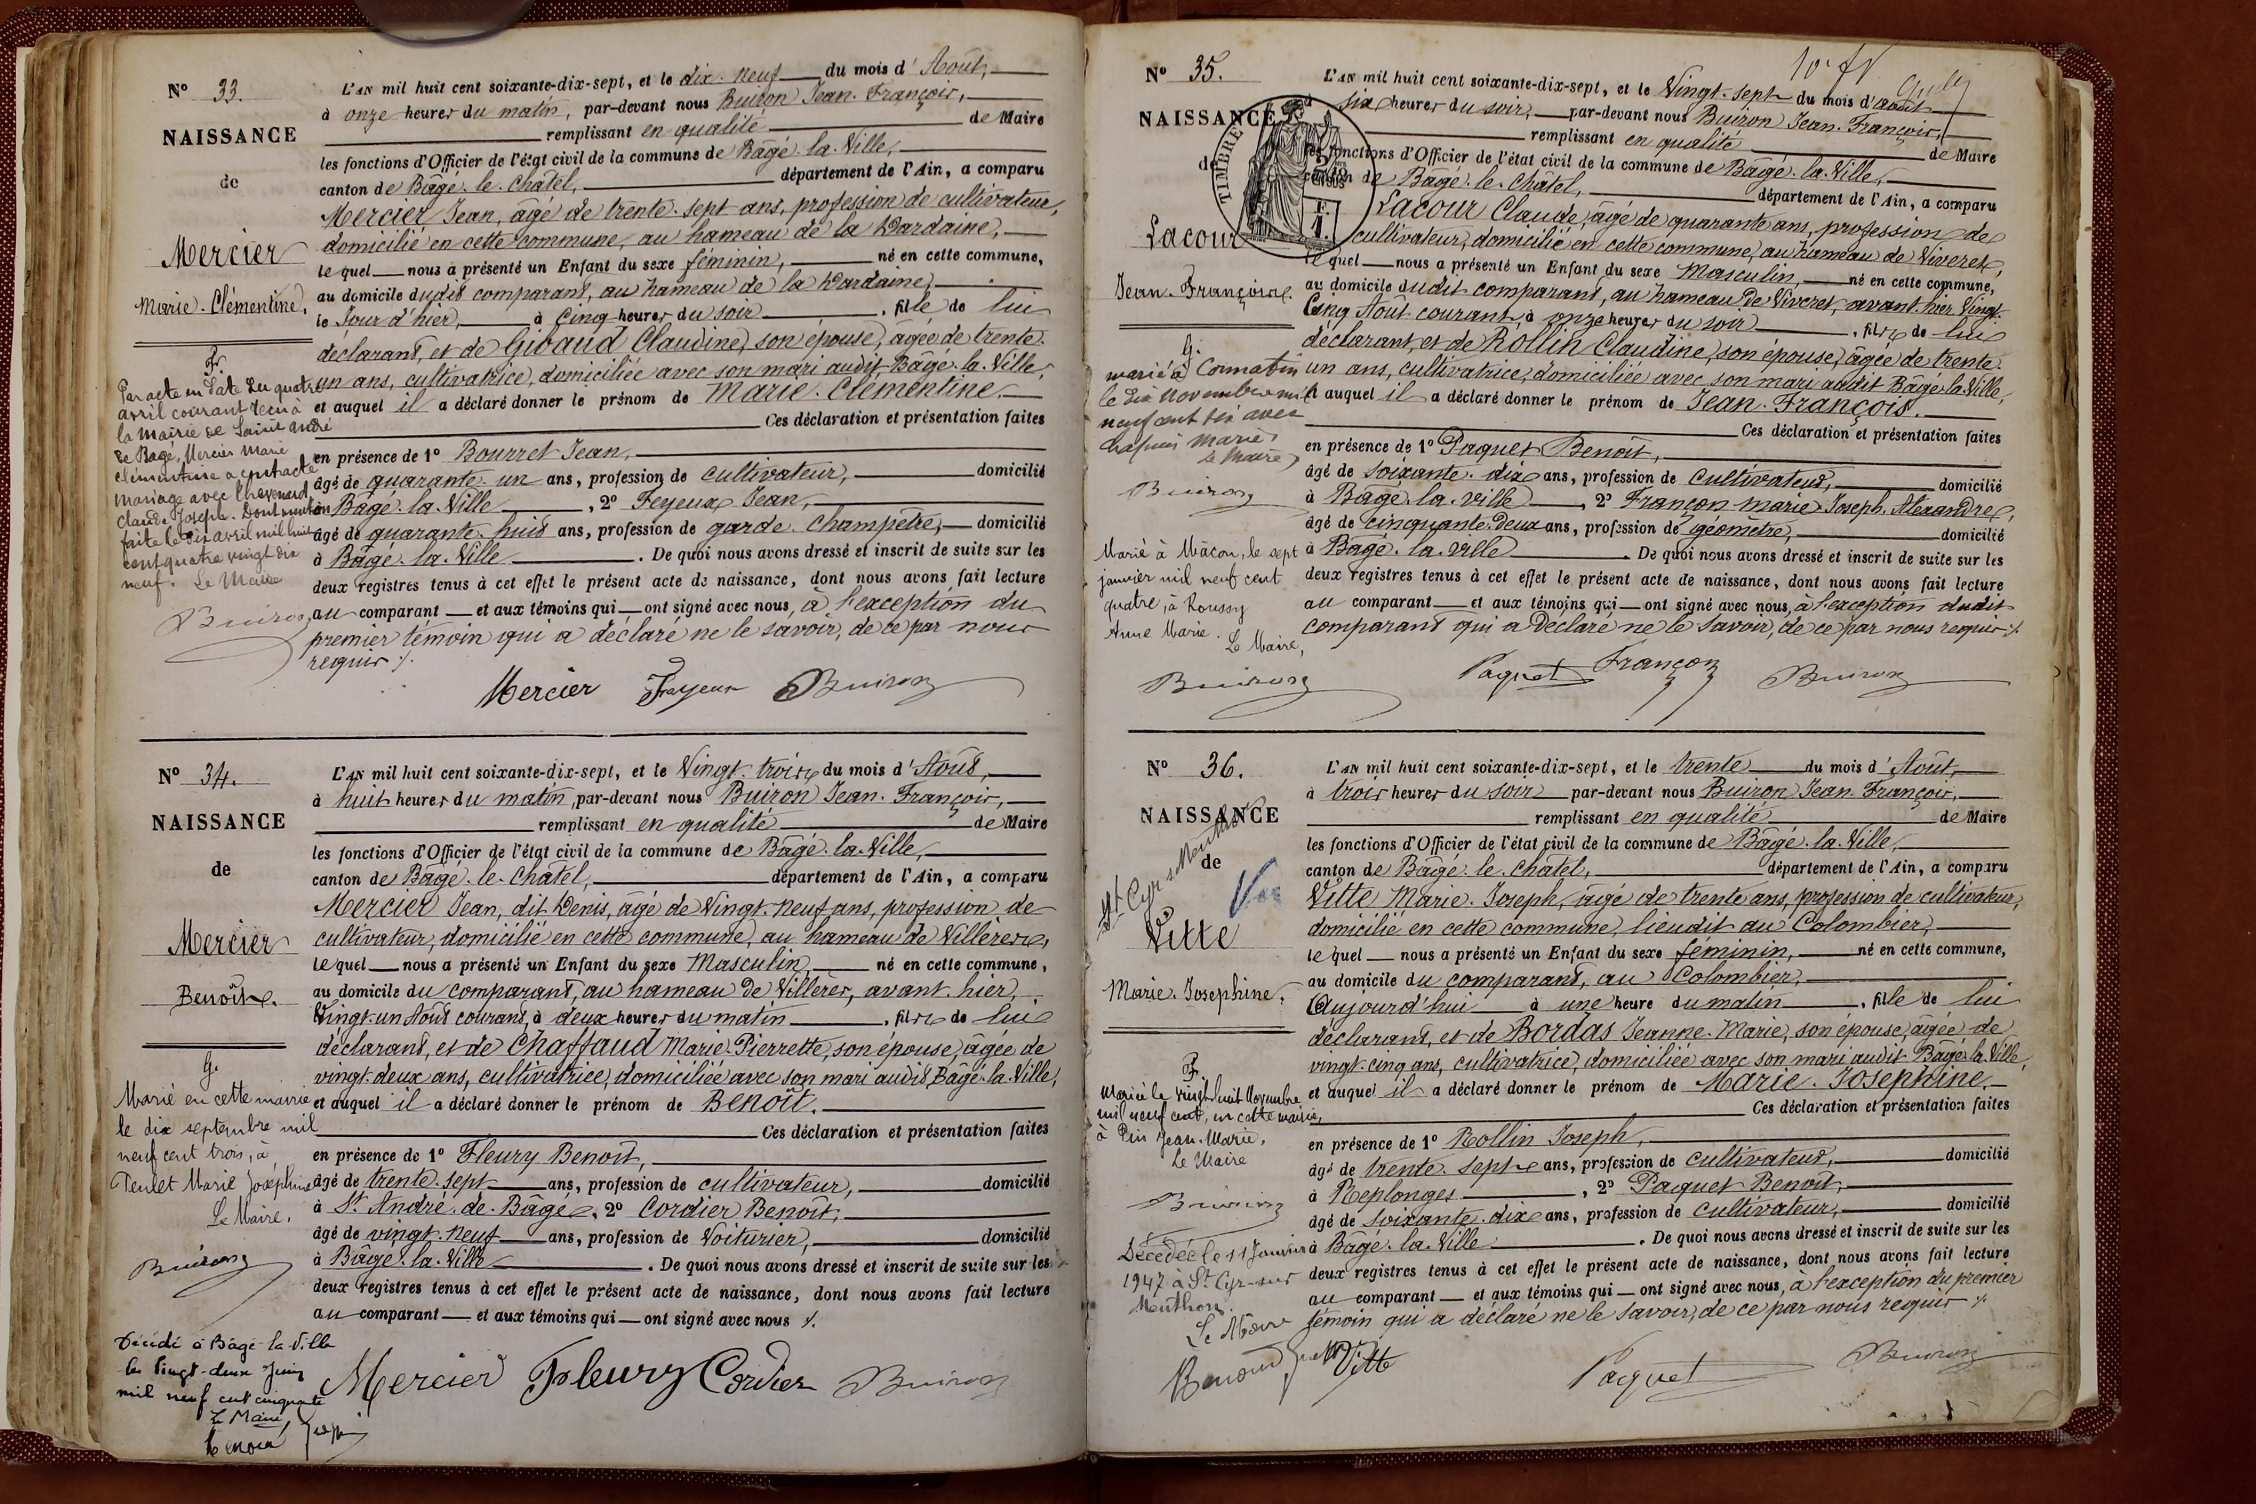 Nº 33.
NAISSANCE
de
Mercier
Marie-Clémentine.
F.
Par acte en date du quatre
avril courant reçu à
la Mairie de Saint André
de Bagé, Mercier Marie
clémentine a contracté
mariage avec Chevenard
Claude Joseph. Dont mention
faite le dix avril mil huit
cent quatre vingt dix
neuf. Le Maire
Buiron
L'AN mil huit cent soixante-dix-sept, et le dix-neuf du mois d'Août,
à onze heures du matin, par-devant nous Buiron Jean-François,
remplissant en qualité de Maire
les fonctions d'Officier de l'état civil de la commune de Bâgé-la-Ville,
canton de Bâgé-le-Châtel, département de l'Ain, a comparu
Mercier Jean, âgé de trente-sept ans, profession de cultivateur,
domicilié en cette commune, au hameau de la Dardaine,
lequel nous a présenté un Enfant du sexe féminin, né en cette commune,
au domicile dudit comparant, au hameau de la Dardaine,
le Jour d'hier, à cinq heures du soir, fille de lui
déclarant, et de Gibaud Claudine, son épouse, âgée de trente-
un ans, cultivatrice, domiciliée avec son mari audit Bâgé-la-Ville,
et auquel il a déclaré donner le prénom de Marie-Clémentine.
Ces déclaration et présentation faites
en présence de 1º Bourret Jean,
âgé de quarante-un ans, profession de cultivateur, domicilié
à Bâgé-la-Ville, 2º Feyeux Jean,
âgé de quarante-huit ans, profession de garde-champêtre, domicilié
à Bâgé-la-Ville. De quoi nous avons dressé et inscrit de suite sur les
deux registres tenus à cet effet le présent acte de naissance, dont nous avons fait lecture
au comparant et aux témoins qui ont signé avec nous, à l'exception du
premier témoin qui a déclaré ne le savoir, de ce par nous
requis ./.
Mercier Feyeux Buiron
Nº 34.
NAISSANCE
de
Mercier
Benoît.
G.
Marié en cette mairie
le dix septembre mil
neuf cent trois, à
Tenlet Marie Joséphine
Le Maire,
Buiron
Décédé à Bâgé-la-Ville
le Vingt-deux Juin
mil neuf cent cinquante
Le Maire,
L'AN mil huit cent soixante-dix-sept, et le Vingt-trois du mois d'Août,
à huit heures du matin, par-devant nous Buiron Jean-François,
remplissant en qualité de Maire
les fonctions d'Officier de l'état civil de la commune de Bâgé-la-Ville,
canton de Bâgé-le-Châtel, département de l'Ain, a comparu
Mercier Jean, dit Denis, âgé de Vingt-neuf ans, profession de
cultivateur, domicilié en cette commune, au hameau de Villerès,
lequel nous a présenté un Enfant du sexe Masculin, né en cette commune,
au domicile du comparant, au hameau de Villerès, avant-hier,
Vingt-un Août courant, à deux heures du matin, fils de lui
déclarant, et de Chaffaud Marie-Pierrette, son épouse, âgée de
vingt-deux ans, cultivatrice, domiciliée avec son mari audit Bâgé-la-Ville,
et auquel il a déclaré donner le prénom de Benoît.
Ces déclaration et présentation faites
en présence de 1º Fleury Benoît,
âgé de trente-sept ans, profession de cultivateur, domicilié
à St André-de-Bâgé, 2º Cordier Benoît,
âgé de vingt-neuf ans, profession de Voiturier, domicilié
à Bâgé-la-Ville. De quoi nous avons dressé et inscrit de suite sur les
deux registres tenus à cet effet le présent acte de naissance, dont nous avons fait lecture
au comparant et aux témoins qui ont signé avec nous ./.
Mercier Fleury Cordier Buiron
Nº 35.
NAISSANCE
de
Lacour
Jean-François.
TIMBRE
G.
marié à Cormatin
le dix novembre mil
neuf cent dix avec
Chapuis Marie
Le Maire,
Buiron
Marié à Mâcon, le sept
janvier mil neuf cent
quatre, à Roussy
Anne Marie.
Le Maire,
Buiron
L'AN mil huit cent soixante-dix-sept, et le Vingt-sept du mois d'Août
six heures du soir, par-devant nous Buiron Jean-François,
remplissant en qualité de Maire
les fonctions d'Officier de l'état civil de la commune de Bâgé-la-Ville,
canton de Bâgé-le-Châtel, département de l'Ain, a comparu
Lacour Claude, âgé de quarante ans, profession de
cultivateur, domicilié en cette commune, au hameau de Viveret,
lequel nous a présenté un Enfant du sexe Masculin, né en cette commune,
au domicile dudit comparant, au hameau de Viveret, avant-hier Vingt-
Cinq Août courant, à onze heures du soir, fils de lui
déclarant, et de Rollin Claudine, son épouse, âgée de trente-
un ans, cultivatrice, domiciliée avec son mari audit Bâgé-la-Ville,
et auquel il a déclaré donner le prénom de Jean-François.
Ces déclaration et présentation faites
en présence de 1º Paquet Benoît,
âgé de soixante-dix ans, profession de Cultivateur, domicilié
à Bâgé-la-Ville, 2º Françon Marie-Joseph-Alexandre,
âgé de cinquante-deux ans, profession de géomètre, domicilié
à Bâgé-la-Ville. De quoi nous avons dressé et inscrit de suite sur les
deux registres tenus à cet effet le présent acte de naissance, dont nous avons fait lecture
au comparant et aux témoins qui ont signé avec nous, à l'exception dudit
comparant qui a déclaré ne le savoir, de ce par nous requis ./.
Paquet Françon Buiron
Nº 36.
NAISSANCE
de
St Cyr s Menthon
Vitte
Marie-Josephine.
F.
Mariée le vingt huit Novembre
mil neuf cent, en cette mairie,
à Pin Jean-Marie.
Le Maire
Buiron
Décédée le 11 Janvier
1947 à St Cyr-sur
Menthon.
Le Maire
L'AN mil huit cent soixante-dix-sept, et le trente du mois d'Août,
à trois heures du soir par-devant nous Buiron Jean-François,
remplissant en qualité de Maire
les fonctions d'Officier de l'état civil de la commune de Bâgé-la-Ville,
canton de Bâgé-le-Châtel, département de l'Ain, a comparu
Vitte Marie-Joseph, âgé de trente ans, profession de cultivateur,
domicilié en cette commune, lieudit au Colombier,
lequel nous a présenté un Enfant du sexe féminin, né en cette commune,
au domicile du comparant, au Colombier,
Aujourd'hui à une heure du matin, fille de lui
déclarant, et de Bordas Jeanne-Marie, son épouse, âgée de
vingt-cinq ans, cultivatrice, domiciliée avec son mari audit Bâgé-la-Ville,
et auquel il a déclaré donner le prénom de Marie-Josephine.
Ces déclaration et présentation faites
en présence de 1º Rollin Joseph,
âgé de trente-sept ans, profession de cultivateur, domicilié
à Replonges, 2º Paquet Benoît,
âgé de soixante-dix ans, profession de cultivateur, domicilié
à Bâgé-la-Ville. De quoi nous avons dressé et inscrit de suite sur les
deux registres tenus à cet effet le présent acte de naissance, dont nous avons fait lecture
au comparant et aux témoins qui ont signé avec nous, à l'exception du premier
témoin qui a déclaré ne le savoir, de ce par nous requis ./.
Vitte Paquet Buiron